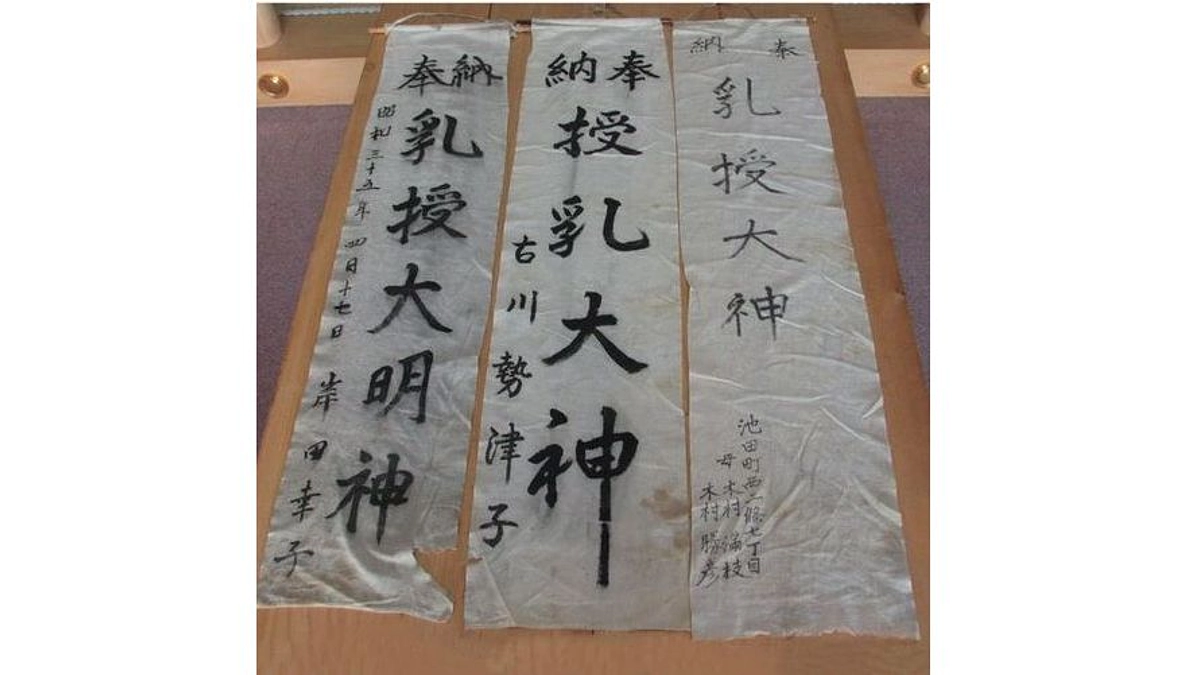 奉納
乳授大神
池田町西二條七丁目
母 木村 満枝
木村 勝彦
奉納
授乳大神
古川勢津子
奉納
乳授大明神
昭和三十五年四月十七日 岸田幸子